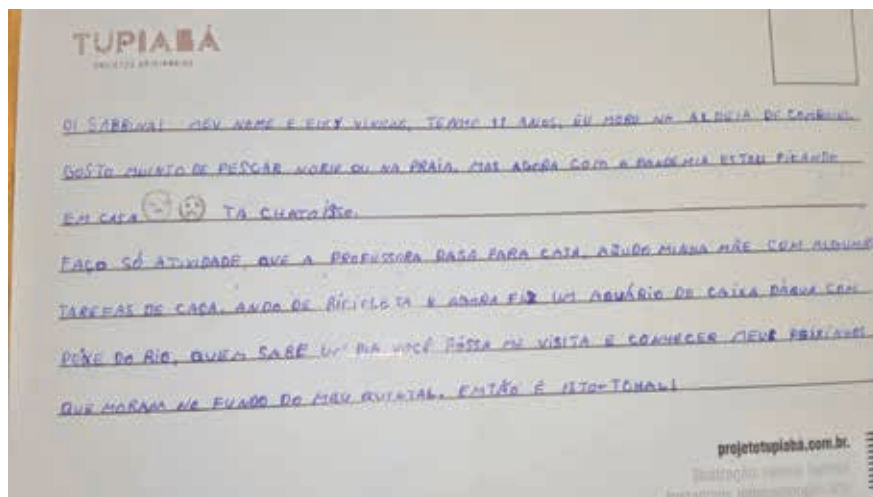 TUPIABÁ
OI SABRINA! MEU NAME E VINCAS, TENHO 11 ANOS, EU MORO NA ALDEIA DE COMBOIOS
GOSTO MUINTO DE PESCAR NORIO OU NA PRAIA. MAS AGORA COM A PANDEMIA ESTOU FICANDO
EM CASA TA CHATO ISSO.
FAÇO SÓ ATIVIDADE, QUE A PROFESSORA PASA PARA CASA, AJUDO MINHA MÃE COM ALGUMAS
TAREFAS DE CASA, ANDO DE BICICLETA E AGORA FIZ UM AQUÁRIO DE CAIXA DÁGUA COM
PEIXE DO RIO, QUEM SABE UM DIA VOCÊ POSSA ME VISITA E CONHECER MEUS PEIXINHOS
QUE MORAM NO FUNDO DO MEU QUINTAL. ENTÃO É ISTO-TCHAU!
projetotupiabá.com.br.